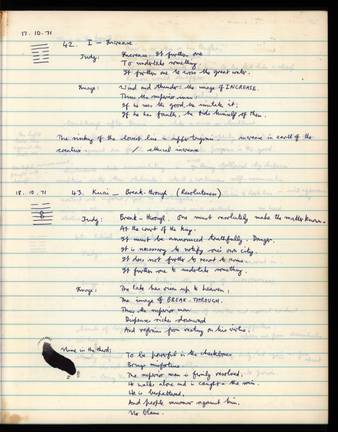 17.10.71
42. I – Increase
Judg: Increase. It furthers one
To undertake something
It furthers one to cross the great water.
Image: Wind and thunder: the image of INCREASE.
Thus the superior man:
If he sees the good, he imitates it;
If he has faults, he rids himself of them.
The sinking of the lowest line in upper trigram increase in earth of the
creative ethical increase.
18.10.71 43. Kuai – Break-through (Resoluteness)
Judg: Break-through. One must resolutely make the matter known
At the court of the king.
It must be announced truthfully. Danger.
It is necessary to notify one's own city.
It does not further to resort to arms.
It furthers one to undertake something.
Image: The lake has risen up to heaven;
The image of BREAK-THROUGH.
Thus the superior man
Dispenses riches downward
And refrains from resting on his virtue.
Nine in the third: To be powerful in the cheekbones
Brings misfortune.
The superior man is firmly resolved.
He walks alone and is caught in the rain.
He is bespattered,
And people murmur against him.
No blame.